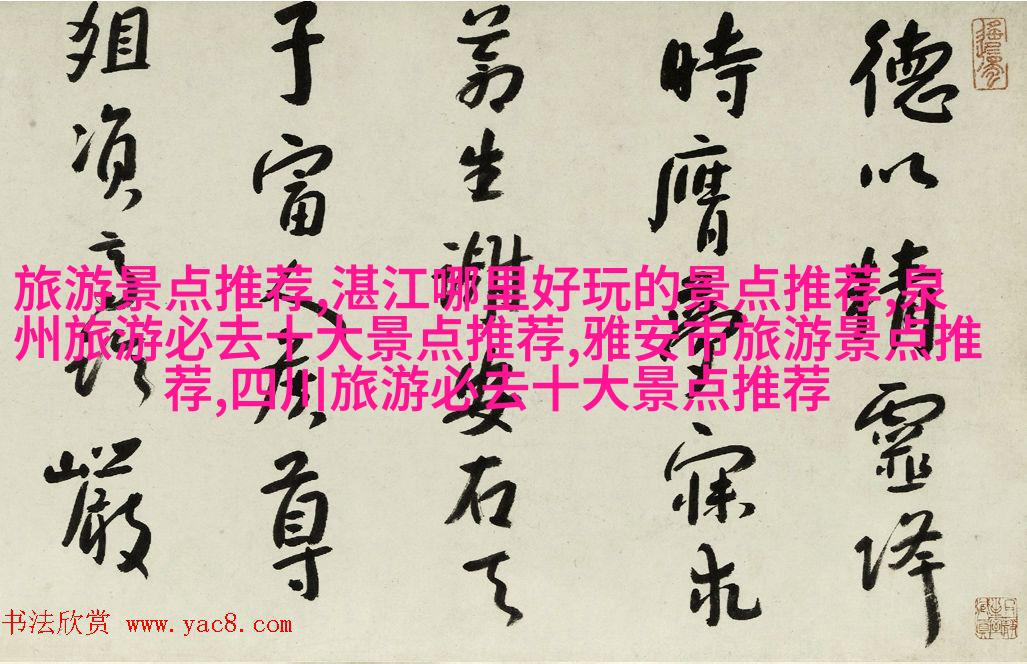 德以精靈降
時膺夢寐求
蒼生謝安石天
子富人侯尊
俎資高論巖
旅游景点推荐,湛江哪里好玩的景点推荐,泉
州旅游必去十大景点推荐,雅安市旅游景点推
荐,四川旅游必去十大景点推荐
书法欣赏 www.yac8.com